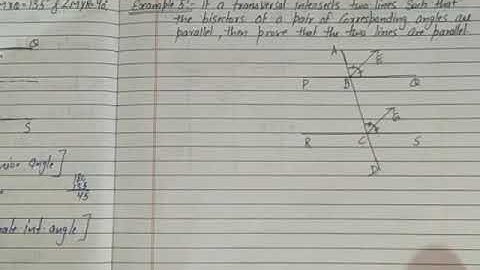 MXQ = 135° & ∠MYR = 40°
Example 5:- If a transversal intersects two lines such that
the bisectors of a pair of corresponding angles are
parallel, then prove that the two lines are parallel.
Q
S
angle]
180
135
45
int. angle]
A
E
P
B
Q
G
R
C
S
D